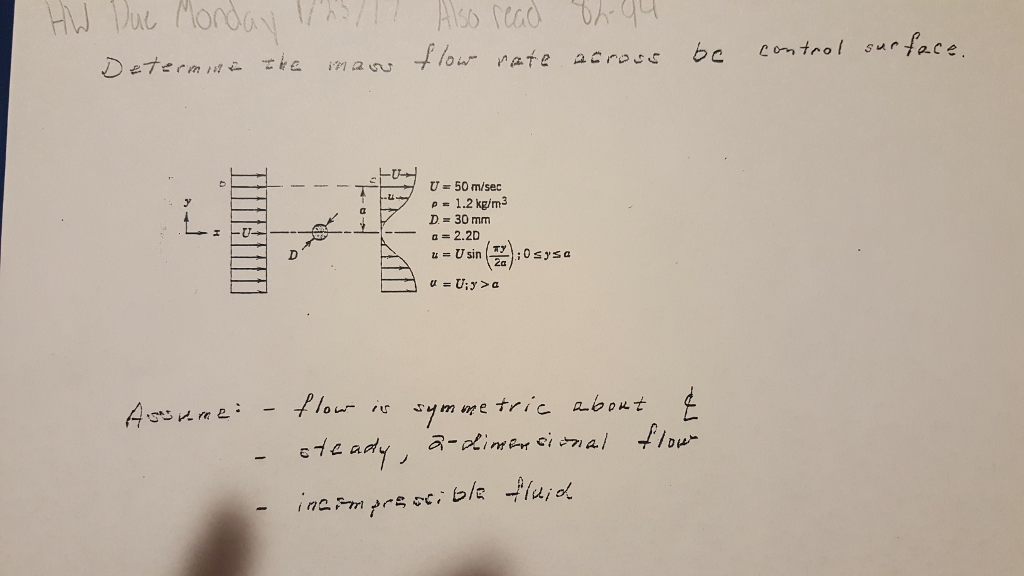 HW Due Monday 1/23/17 Also read 82-94
Determine the mass flow rate across bc control surface.
b
c
U
y
x
U
u
a
D
U = 50 m/sec
ρ = 1.2 kg/m³
D = 30 mm
a = 2.2D
u = U sin (πy/2a); 0≤y≤a
u = U; y > a
Assume: - flow is symmetric about ℄
- steady, 2-dimensional flow
- incompressible fluid